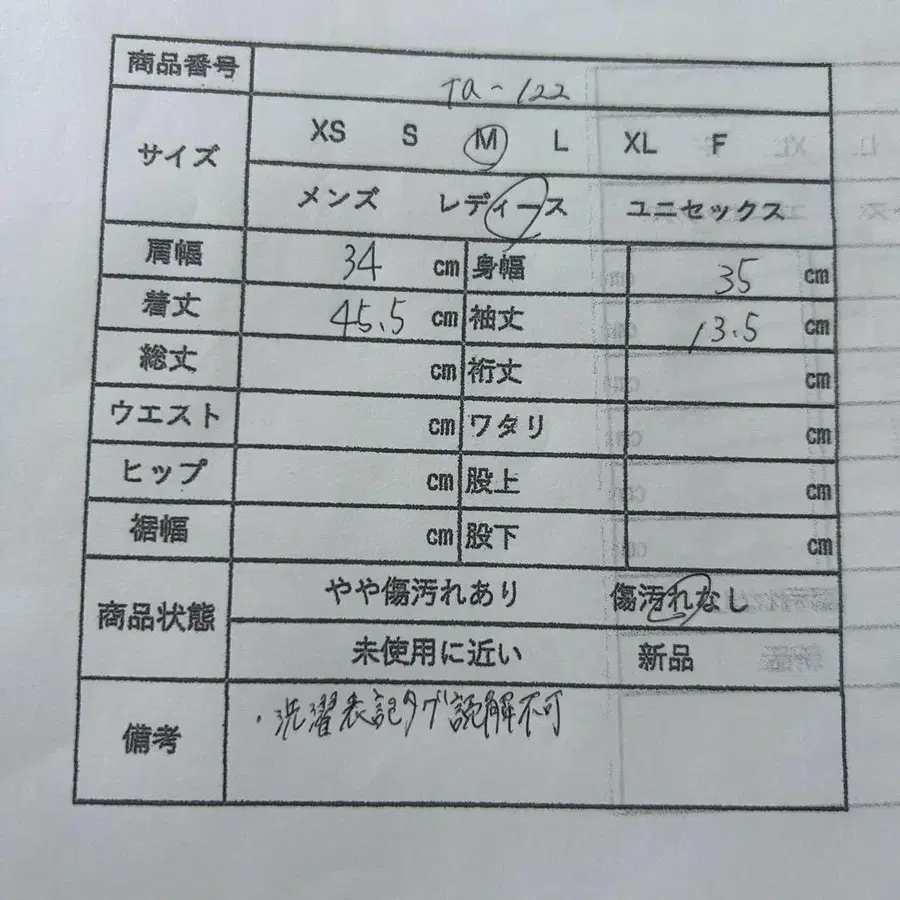 商品番号 Ta-122
サイズ XS S M L XL F
メンズ レディース ユニセックス
肩幅 34 cm 身幅 35 cm
着丈 45.5 cm 袖丈 13.5 cm
総丈 cm 裄丈 cm
ウエスト cm ワタリ cm
ヒップ cm 股上 cm
裾幅 cm 股下 cm
商品状態 やや傷汚れあり 傷汚れなし
未使用に近い 新品
備考 ・洗濯表記タグ読解不可